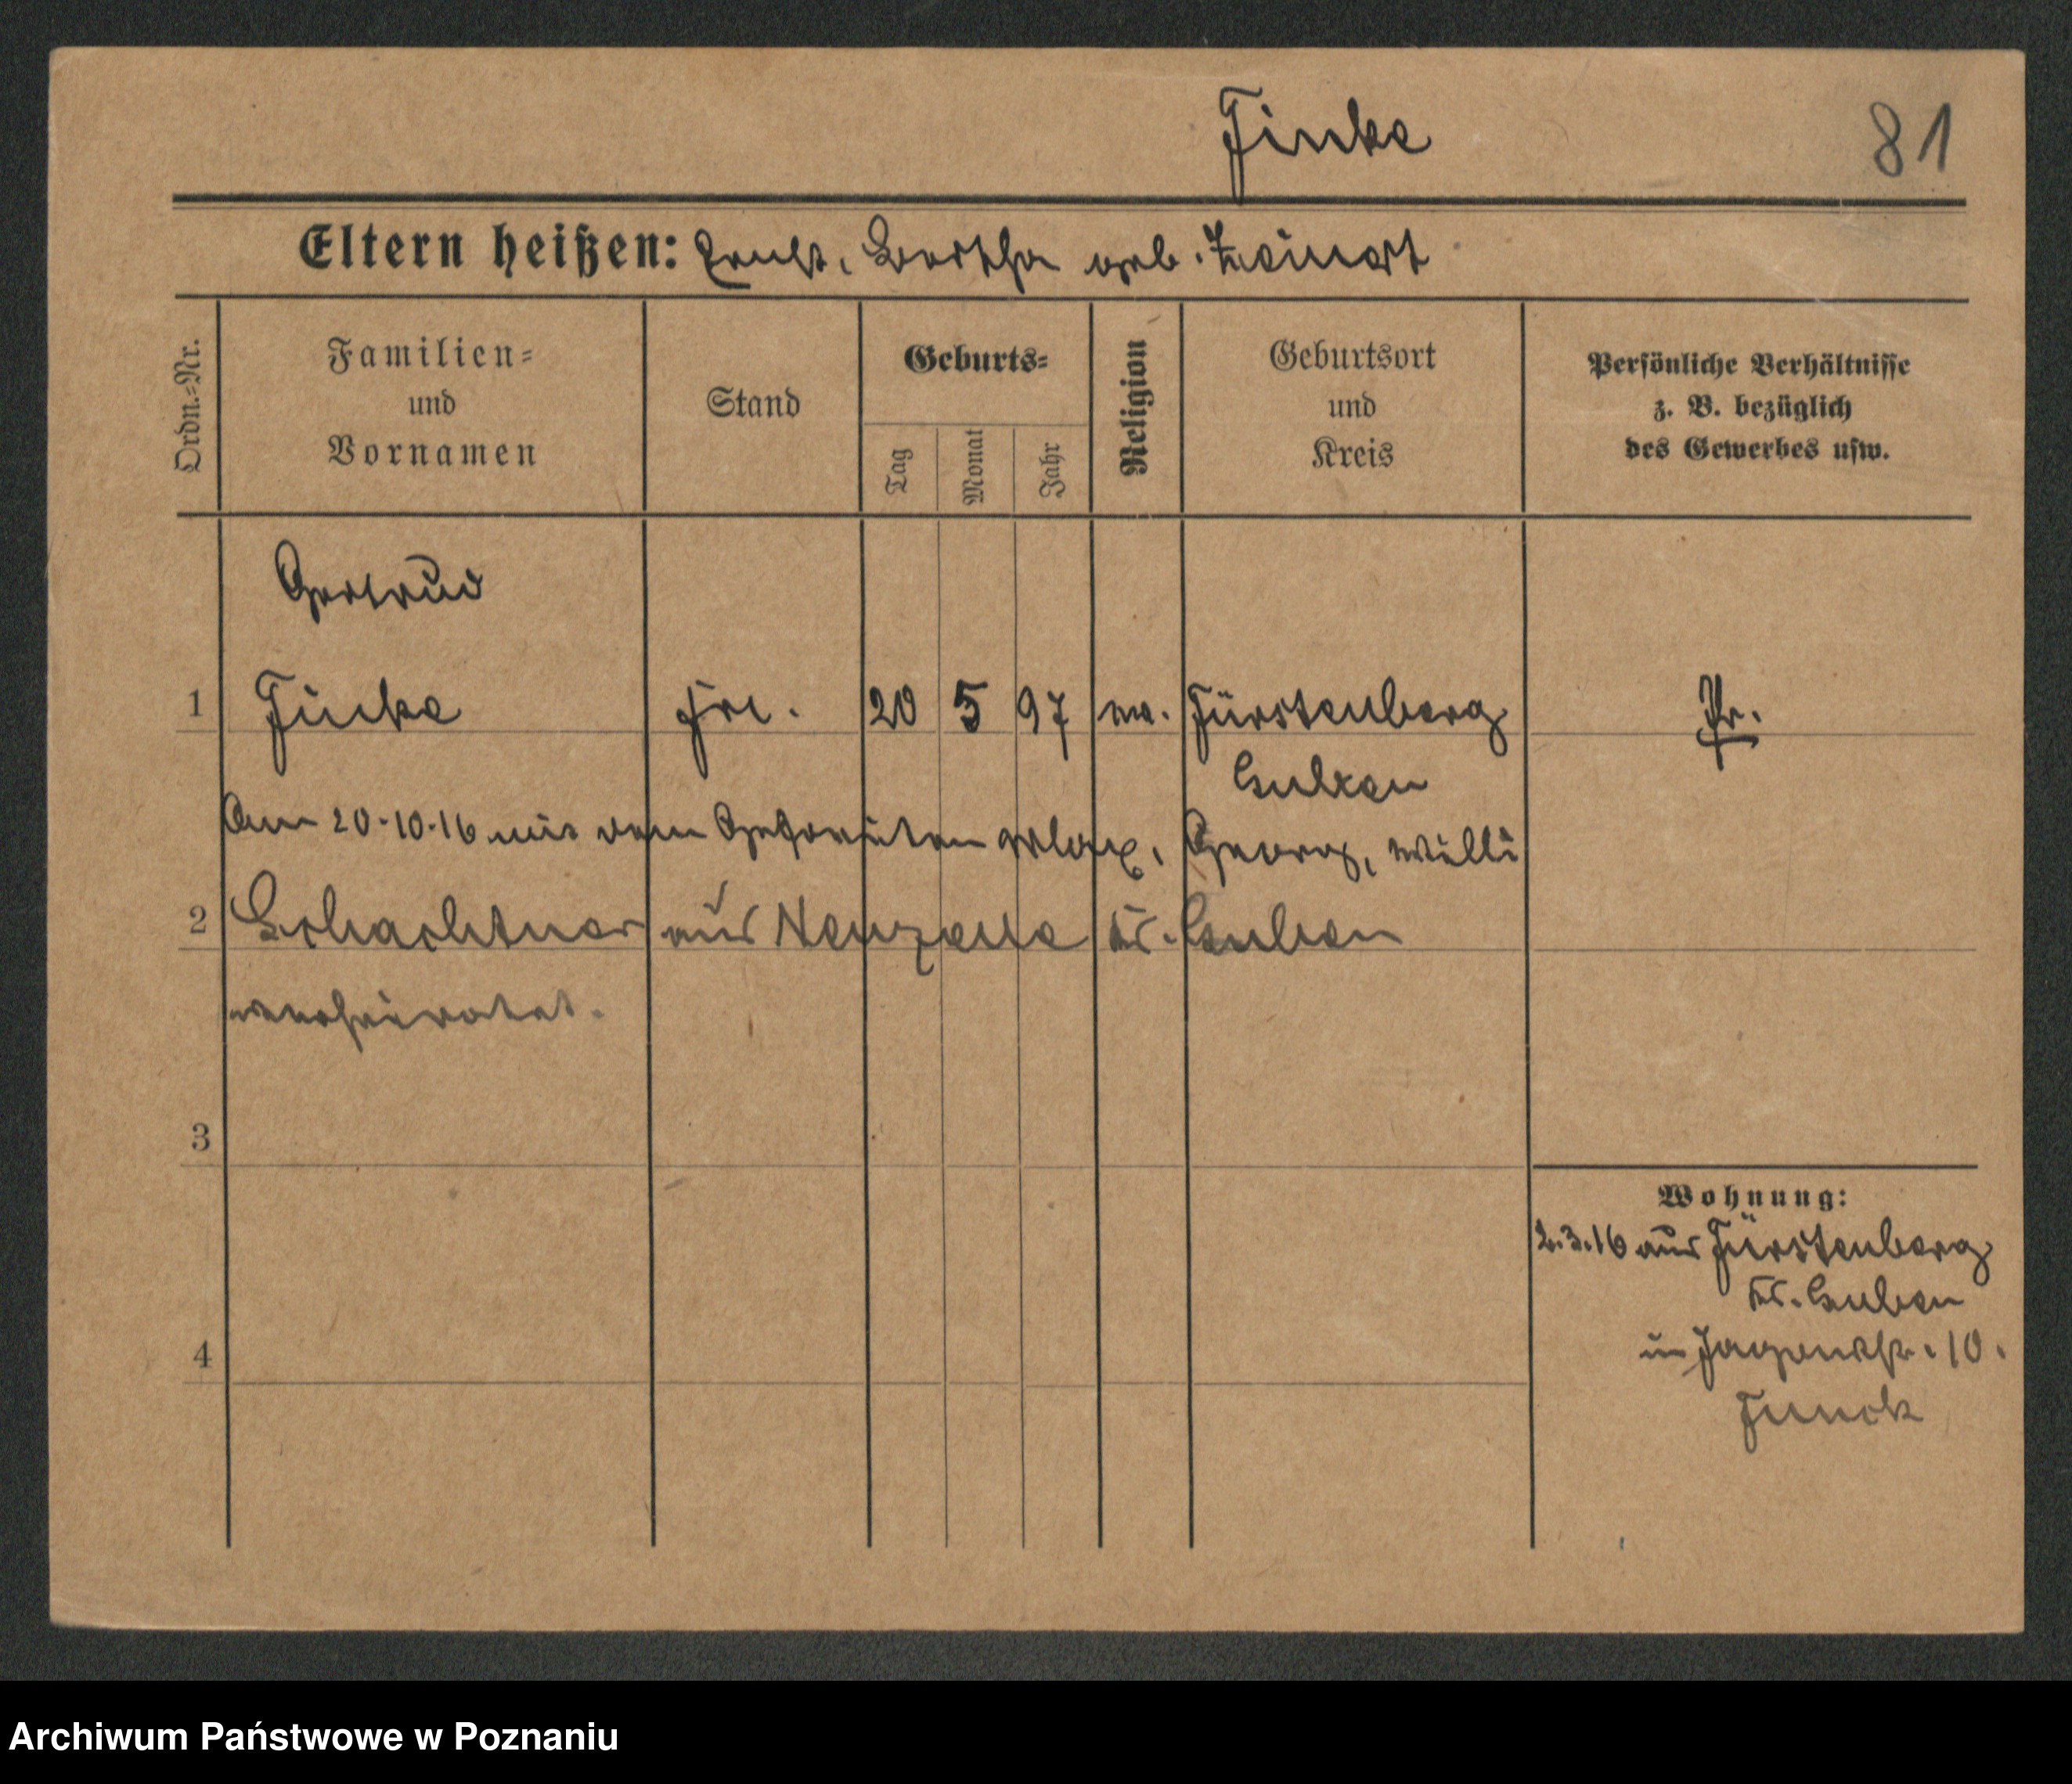 Finke
81
Eltern heißen: Ernst, Bertha geb. Leinert
Ordn.-Nr.
Familien-
und
Vornamen
Stand
Geburts-
Tag
Monat
Jahr
Religion
Geburtsort
und
Kreis
Persönliche Verhältnisse
z. B. bezüglich
des Gewerbes usw.
Gertrud
1 Finke Frl. 20 5 97 ev. Fürstenberg Pr.
Guben
Am 20.10.16 mit dem Gefreiten Max, Georg, Willi
2 Schachtner aus Neuzelle Kr. Guben
verheiratet.
3
4
Wohnung:
2.3.16 aus Fürstenberg
Kr. Guben
in 10.
Funck
Archiwum Państwowe w Poznaniu